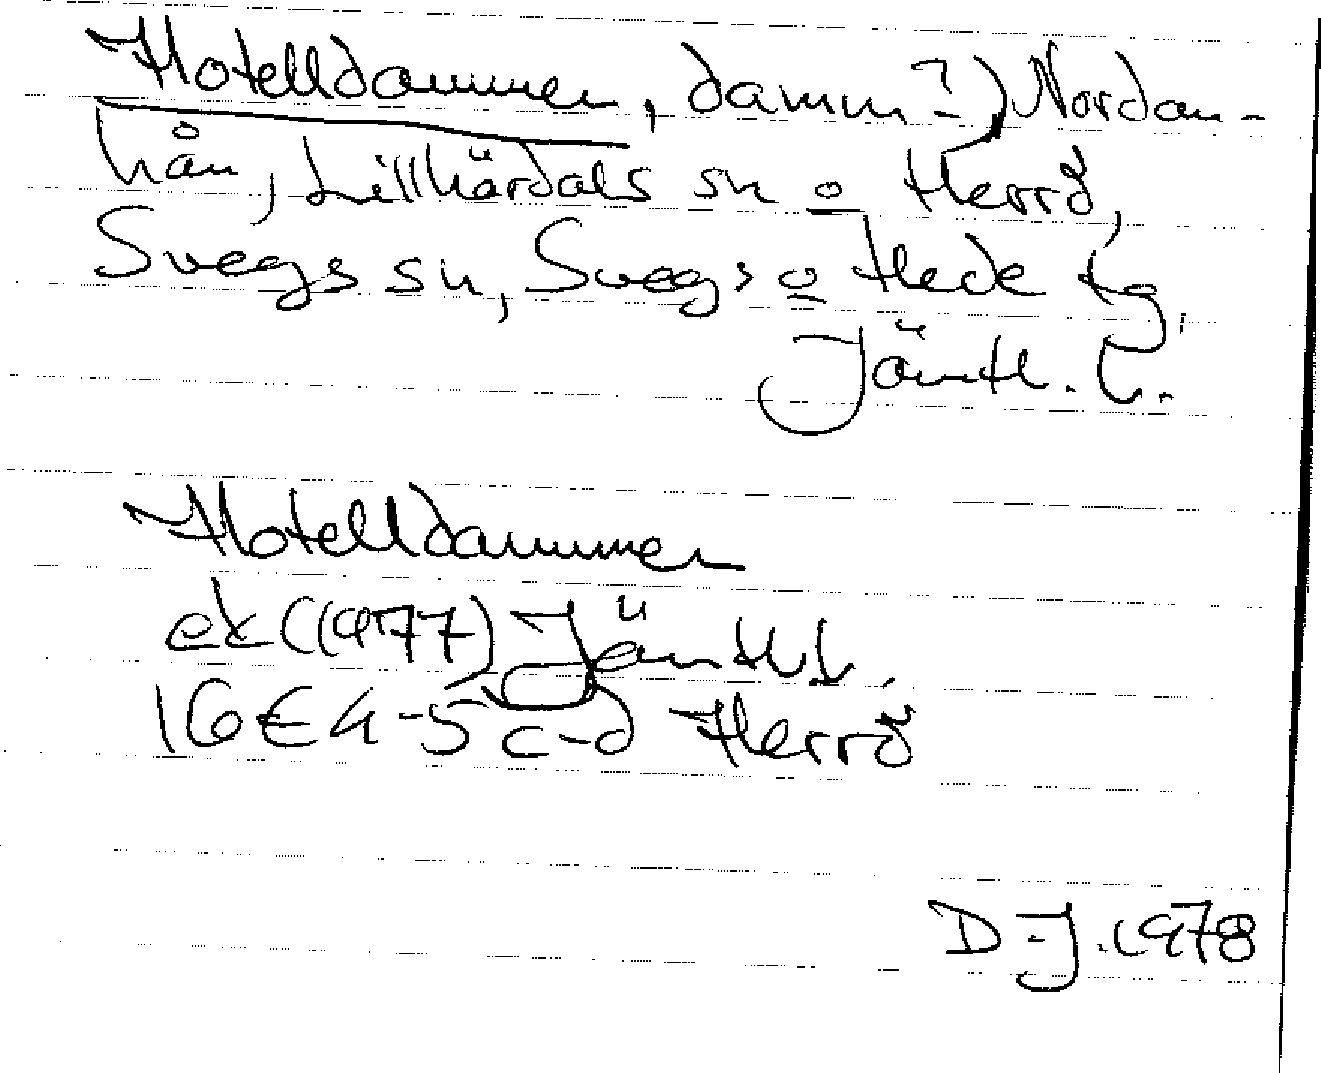 Hotelldammen, damm?, Nordan-
hån, Lillhärdals sn o Herrö,
Svegs sn, Svegs o Hede tg,
Jämtl. l.
Hotelldammen
ek (1977) Jämtl l.
16E 4-5 c-d Herrö
D-J. 1978